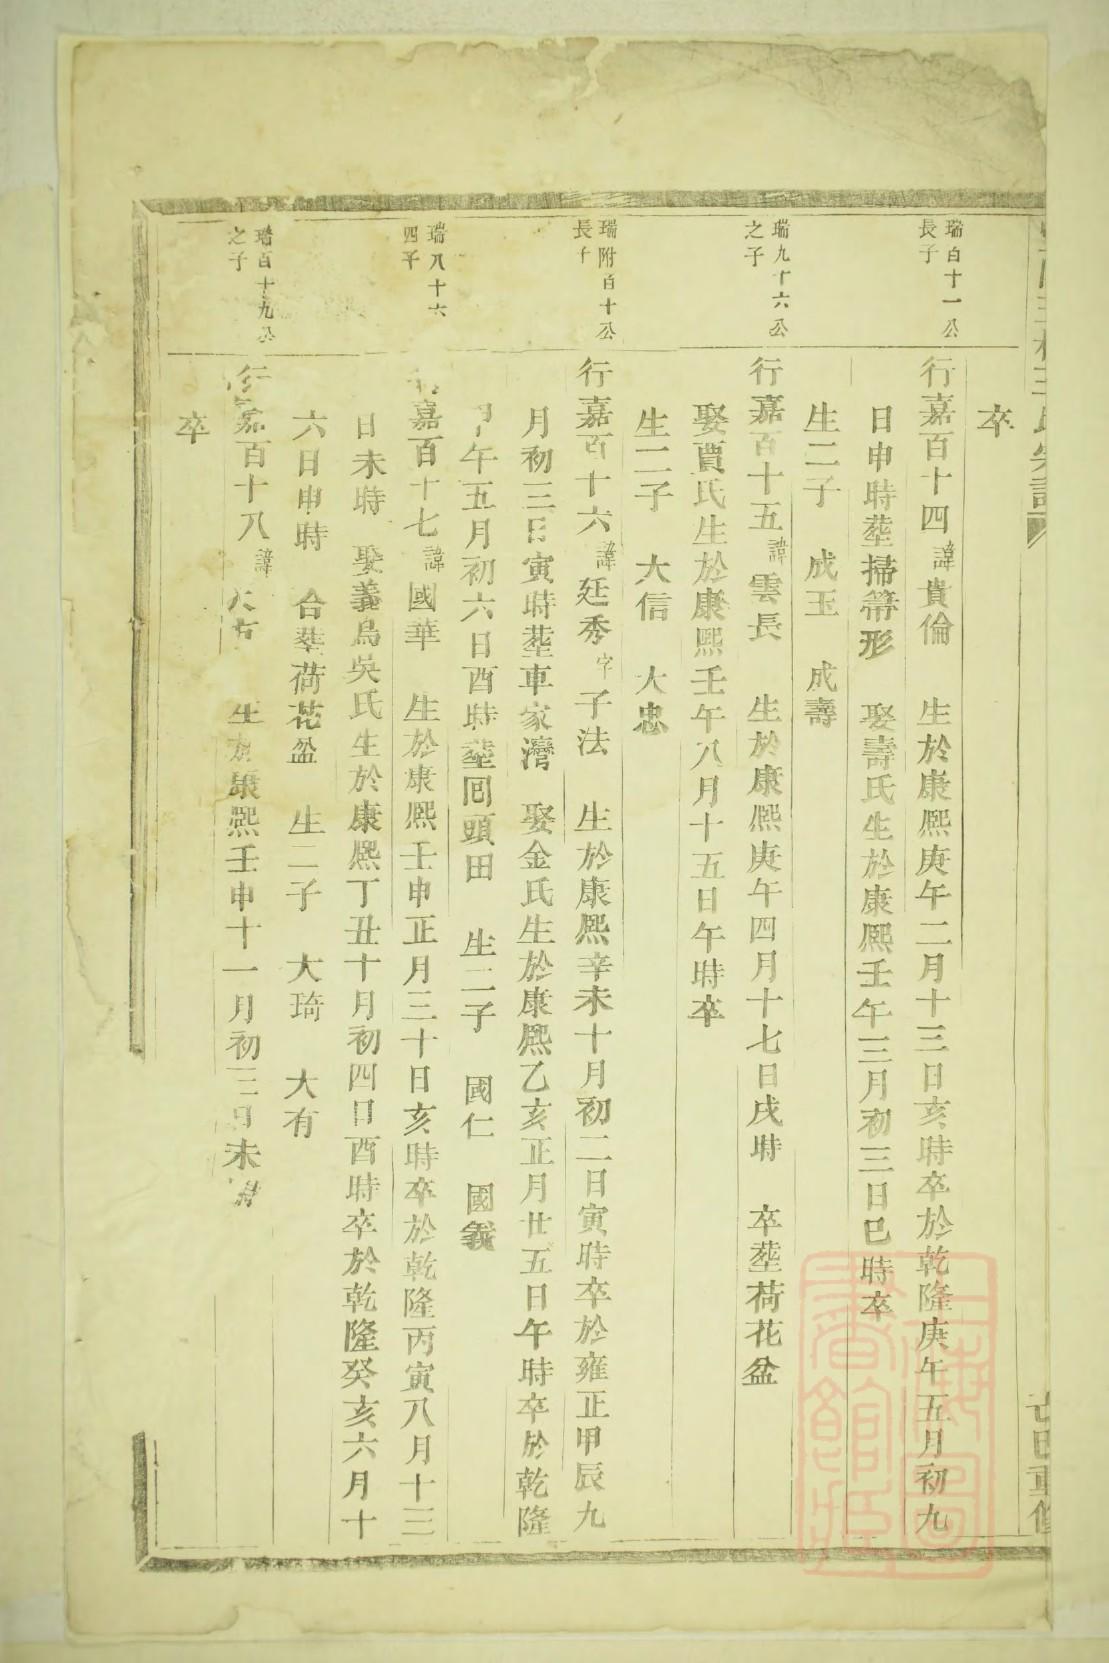 宗譜
七巳重修
卒
瑞百十一公
長子
行嘉百十四諱貴倫 生於康熙庚午二月十三日亥時卒於乾隆庚午五月初九
日申時塟掃箒形 娶壽氏生於康熙壬午三月初三日巳時卒
生二子 成玉 成壽
瑞九十六公
之子
行嘉百十五諱雲長 生於康熙庚午四月十七日戌時 卒塟荷花盆
娶賈氏生於康熙壬午八月十五日午時卒
生二子 大信 大忠
瑞附百十公
長子
行嘉百十六諱廷秀字子法 生於康熙辛未十月初二日寅時卒於雍正甲辰九
月初三日寅時塟車家灣 娶金氏生於康熙乙亥正月廿五日午時卒於乾隆
午五月初六日酉時塟回頭田 生二子 國仁 國義
瑞八十六
四子
嘉百十七諱國華 生於康熙壬申正月三十日亥時卒於乾隆丙寅八月十三
日未時 娶義烏吳氏生於康熙丁丑十月初四日酉時卒於乾隆癸亥六月十
六日申時 合塟荷花盆 生二子 大琦 大有
瑞百十九公
之子
行嘉百十八諱大 生於康熙壬申十一月初三日未時
卒
上海圖書館藏